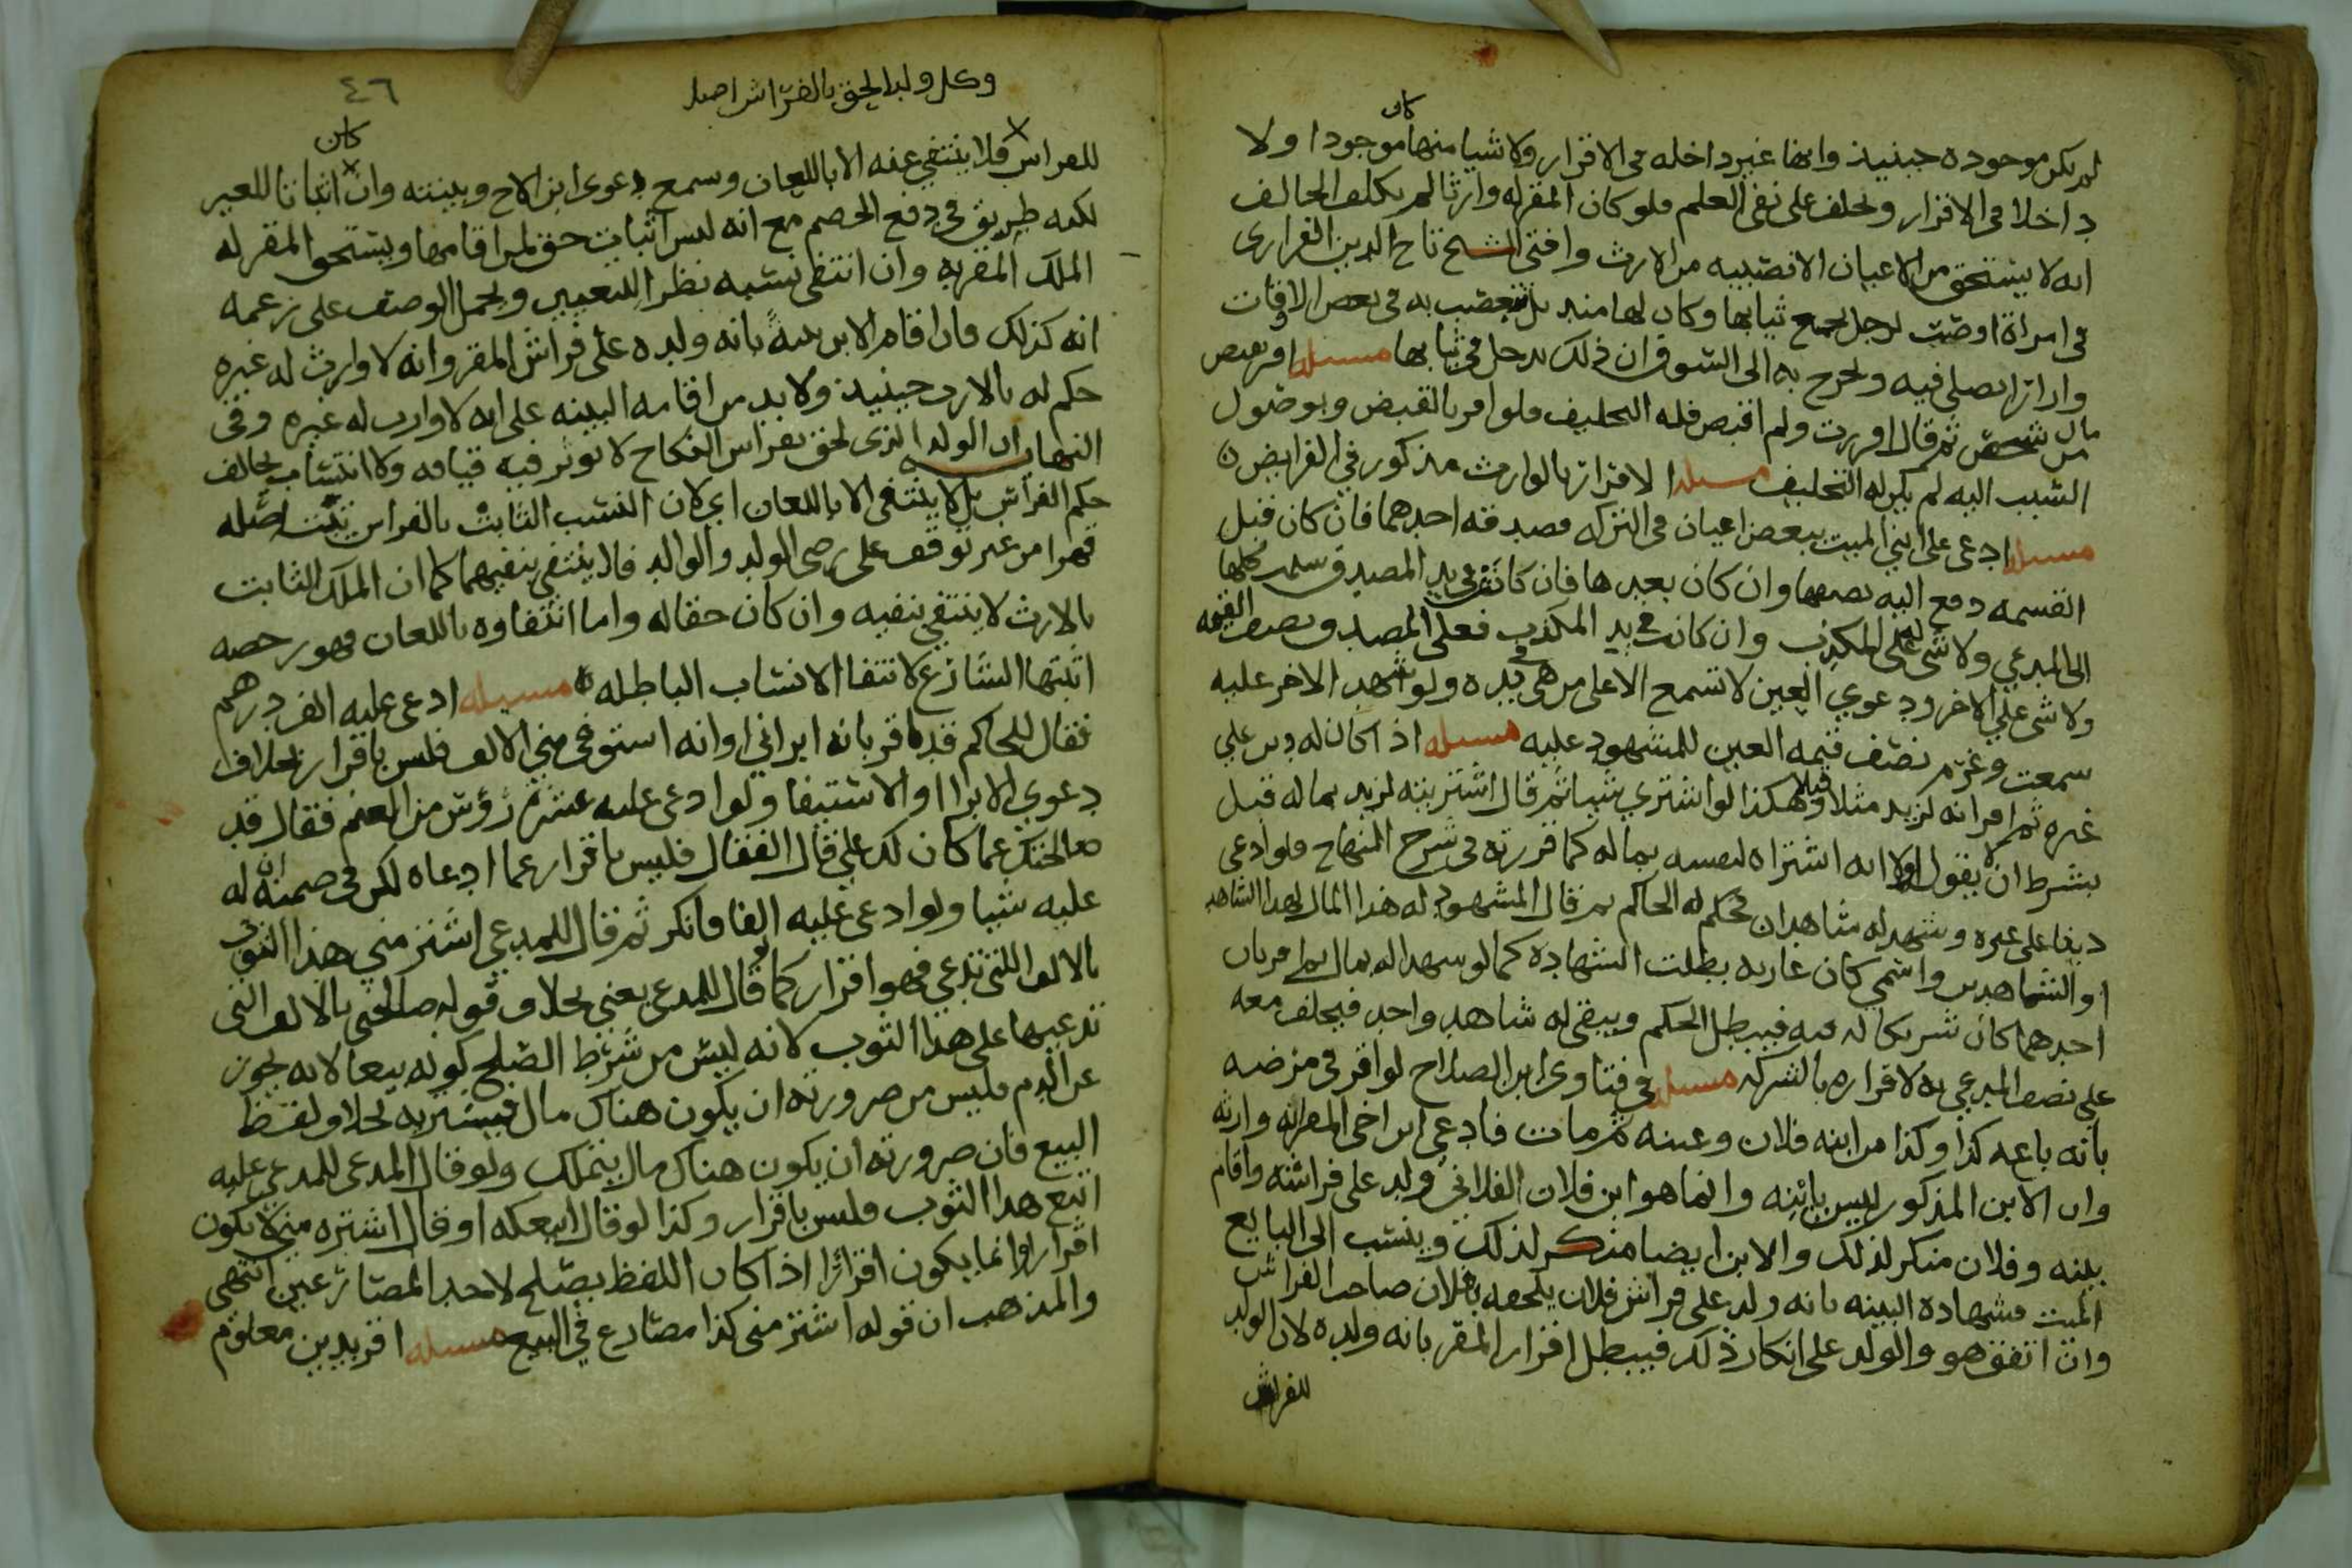 كان
لم يكن موجوده حينيذ وانها غير داخله في الاقرار ولا شيا منها موجودا ولا
داخلا في الاقرار ويحلف على نفي العلم فلو كان المقر له وارثا لم يكلف الحالف
انه لا يستحق من الاعيان الا نصيبه من الارث وافتى الشيخ تاج الدين الفزاري
في امراة اوصت لرجل بجميع ثيابها وكان لها منديل تتعصب به في بعض الاوقات
وازار تصلي فيه وتخرج به الى السوق ان ذلك يدخل في ثيابها مسيله اقر بقبض
مال من شخص ثم قال اقررت ولم اقبض فله التحليف فلو اقر بالقبض وبوصول
الشيب اليه لم يكن له التحليف مسيله الاقرار بالوارث مذكور في الفرايض
مسيله ادعى على ابني الميت ببعض اعيان في التركه فصدقه احدهما فان كان قبل
القسمه دفع اليه نصفها وان كان بعدها فان كانت في يد المصدق سلمت كلها
الى المدعي ولا شي له على المكذب وان كانت في يد المكذب فعلى المصدق نصف القيمه
ولا شي على الاخر ودعوي العين لا تسمع الا على من هي في يده ولو شهد الاخر عليه
سمعت وغرم نصف قيمه العين للمشهود عليه مسيله اذا كان له دين على
غيره ثم اقر انه لزيد مثلا قبل وهكذا لو اشتري شيا ثم قال اشتريته لزيد بماله قبل
بشرط ان لا يقول اولا انه اشتراه لنفسه بماله كما قررته في شرح المنهاج فلو ادعى
دينا على غيره وشهد له شاهدان فحكم له الحاكم ثم قال المشهود له هذا المال لهذا الشاهد
او الشاهدين واسمي كان عاريه بطلت الشهادة كما لو شهدا له بمال ثم اقر بان
احدهما كان شريكا له فيه فيبطل الحكم ويبقى له شاهد واحد فيحلف معه
على نصف المدعى به لاقراره بالشركه مسيله في فتاوى ابن الصلاح لو اقر في مرضه
بانه باع كذا وكذا من ابنه فلان وعينه ثم مات فادعى ابن اخي المقر انه وارثه
وان الابن المذكور ليس بابنه وانما هو ابن فلان الفلاني ولد على فراشه واقام
بينه وفلان منكر لذلك والابن ايضا منكر لذلك وينسب الى البايع
الميت فشهادة البينه بانه ولد على فراش فلان يلحقه بفلان صاحب الفراش
وان اتفق هو والولد على انكار ذلك فيبطل اقرار المقر بانه ولده لان الولد
للفراش
٤٦
وكل ولد لحق بالفراش اصلا
كان
للفراش فلا ينتفي عنه الا باللعان وسمع دعوى ابن الاخ وبينته وان اثباتا للغير
لكنه طريق في دفع الخصم مع انه ليس اثبات حق لمن اقامها ويستحق المقر له
الملك المقر به وان انتفى نسبه نظرا للتعيين ويحمل الوصف على زعمه
انه كذلك فان اقام الابن بينة بانه ولده على فراش المقر وانه لا وارث له غيره
حكم له بالارث حينيذ ولا بد من اقامه البينه على انه لا وارث له غيره وفي
النهايه ان الولد الذي لحق بفراش النكاح لا يوثر فيه قيافه ولا انتساب يخالف
حكم الفراش بل لا ينتفي الا باللعان اي لان النسب الثابت بالفراش يثبت اصله
قهرا من غير توقف على رضى الولد والوالد فلا ينتفي بنفيهما كما ان الملك الثابت
بالارث لا ينتفي بنفيه وان كان حقا له واما انتفاوه باللعان فهو رخصه
اثبتها الشارع لانتفا الانساب الباطله مسيله ادعى عليه الف درهم
فقال للحاكم قد اقر بانه ابراني او انه استوفى مني الالف فليس باقرار بخلاف
دعوي الابرا او الاستيفا ولو ادعى عليه عشرة رؤس من الغنم فقال قد
صالحتك عما كان لك علي قال القفال فليس باقرار عما ادعاه لكن في ضمنه ان له
عليه شيا ولو ادعى عليه الفا فانكر ثم قال للمدعي اشتر مني هذا الثوب
بالالف اللتي تدعي فهو اقرار كما لو قال للمدعى بعني بخلاف قوله صالحني بالالف التي
تدعيها على هذا الثوب لانه ليس من شرط الصلح كونه بيعا لانه يجوز
عن الدم فليس من ضرورته ان يكون هناك مال فيشتريه بخلاف لفظ
البيع فان ضرورته ان يكون هناك مال يتملك ولو قال المدعي للمدعي عليه
ابتع هذا الثوب فليس باقرار وكذا لو قال ابيعكه او قال اشتره مني لا يكون
اقرارا وانما يكون اقرارا اذا كان اللفظ يصلح لاحد المصارعين انتهى
والمذهب ان قوله اشتر مني كذا مصارع في البيع مسيله اقر بدين معلوم